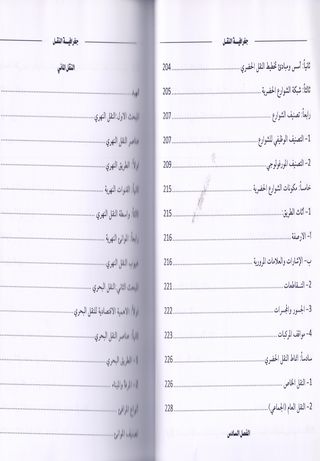 جغرافيـــة النقــل
ثانياً: أسس ومبادئ تخطيط النقل الحضري 204
ثالثاً: شبكة الشوارع الحضرية 205
رابعاً: تصنيف الشوارع 207
1- التصنيف الوظيفي للشوارع 207
2- التصنيف المورفولوجي 209
خامساً: مكونات الشوارع الحضرية 215
1- أثاث الطريق: 215
أ- الارصفة 216
ب- الإشارات والعلامات المرورية 216
2- التقاطعات 221
3- الجسور والممرات 222
4- مواقف المركبات 223
سادساً: انماط النقل الحضري 226
1- النقل الخاص 226
2- النقل العام (الجماعي) 228
الفصل السادس
جغرافيـــة النقــل
النقل المائي
تمهيد
المبحث الاول: النقل النهري
عناصر النقل النهري
اولاً: الطريق النهري
ثانياً: القنوات النهرية
ثالثاً: واسطة النقل النهري
رابعاً: الموانئ النهرية
عيوب النقل النهري
المبحث الثاني: النقل البحري
اولاً: الاهمية الاقتصادية للنقل البحري
ثانياً: عناصر النقل البحري
1- الطريق البحري
2- المرفأ والميناء
انواع الموانئ
تصنيف الموانئ